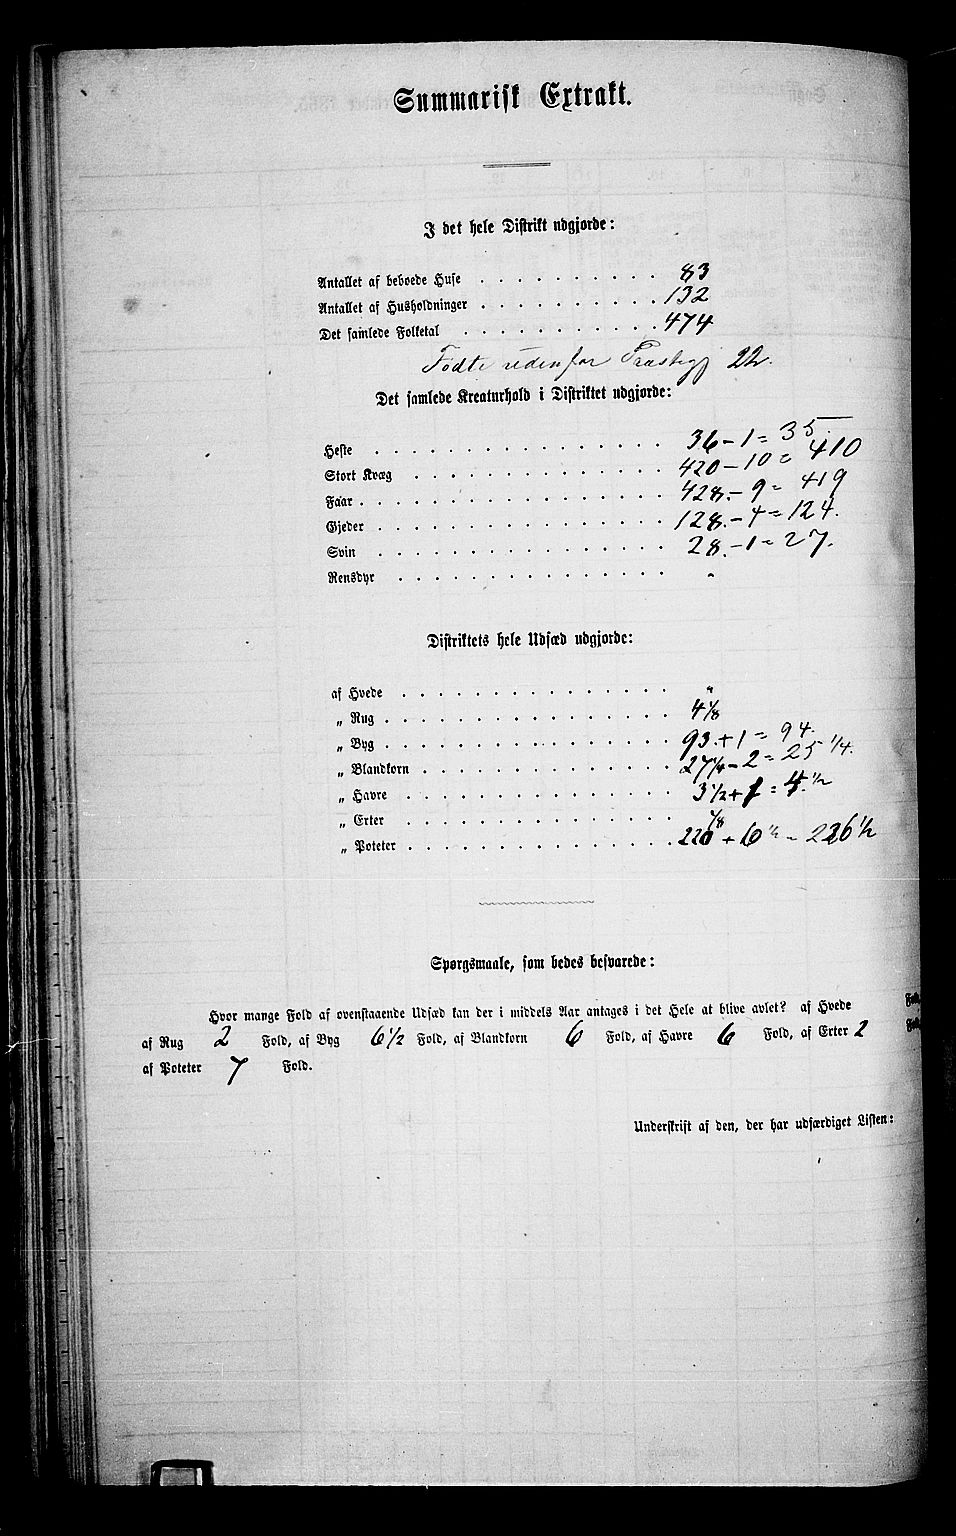 Summarisk Extrakt.
I det hele Distrikt udgjorde:
Antallet af beboede Huse . . . . . . . . . 83
Antallet af Husholdninger . . . . . . . . . 132
Det samlede Folketal . . . . . . . . . . 474
Fødte udenfor 22.
Det samlede Kreaturhold i Distriktet udgjorde:
Heste . . . . . . . . . . . . . 36 - 1 = 35.
Stort Kvæg . . . . . . . . . . . 420 - 10 = 410
Faar . . . . . . . . . . . . . . 428. - 9 = 419
Gjeder . . . . . . . . . . . . . 128. - 4 = 124.
Svin . . . . . . . . . . . . . 28. - 1 = 27.
Rensdyr . . . . . . . . . . . . "
Distriktets hele Udsæd udgjorde:
af Hvede . . . . . . . . . . . . "
„ Rug . . . . . . . . . . . . . 4 1/8
„ Byg . . . . . . . . . . . . . 93. + 1 = 94.
„ Blandkorn . . . . . . . . . . . 27 1/4 - 2 = 25 1/4.
„ Havre . . . . . . . . . . . . 3 1/2 + 1 = 4. 1/2
„ Erter . . . . . . . . . . . . 1/8
„ Poteter . . . . . . . . . . . . 220 + 6 1/2 = 226 1/2
Spørgsmaale, som bedes besvarede:
Hvor mange Fold af ovenstaaende Udsæd kan der i middels Aar antages i det Hele at blive avlet? af Hvede Fold,
af Rug 2 Fold, af Byg 6 1/2 Fold, af Blandkorn 6 Fold, af Havre 6 Fold, af Erter 2 Fold,
af Poteter 7 Fold.
Underskrift af den, der har udfærdiget Listen: